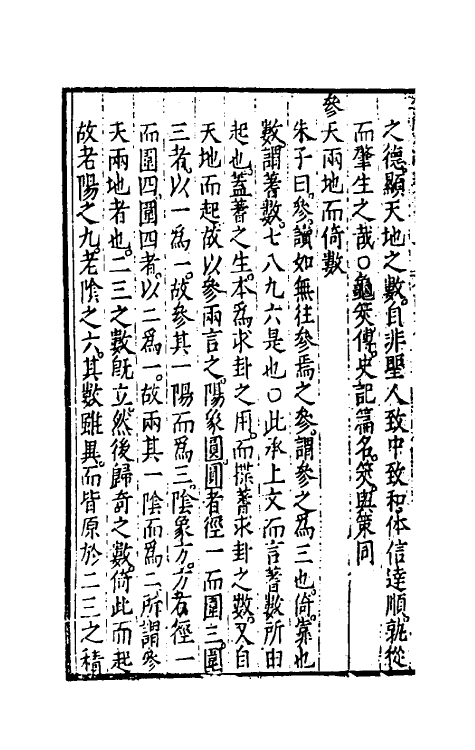 之德顯天地之數自非聖人致中致和体信達順孰從
而肇生之哉○龜筴傳史記篇名筴與策同
參天兩地而倚數
朱子曰參讀如無往參焉之參謂參之為三也倚靠也
數謂蓍數七八九六是也○此承上文而言蓍數所由
起也蓋蓍之生本為求卦之用而揲蓍求卦之數又自
天地而起故以參兩言之陽象圓圓者徑一而圍三圍
三者以一為一故參其一陽而為三陰象方方者徑一
而圍四圍四者以二為一故兩其一陰而為二所謂參
天兩地者也二三之數既立然後歸奇之數倚此而起
故老陽之九老陰之六其數雖異而皆原於二三之積